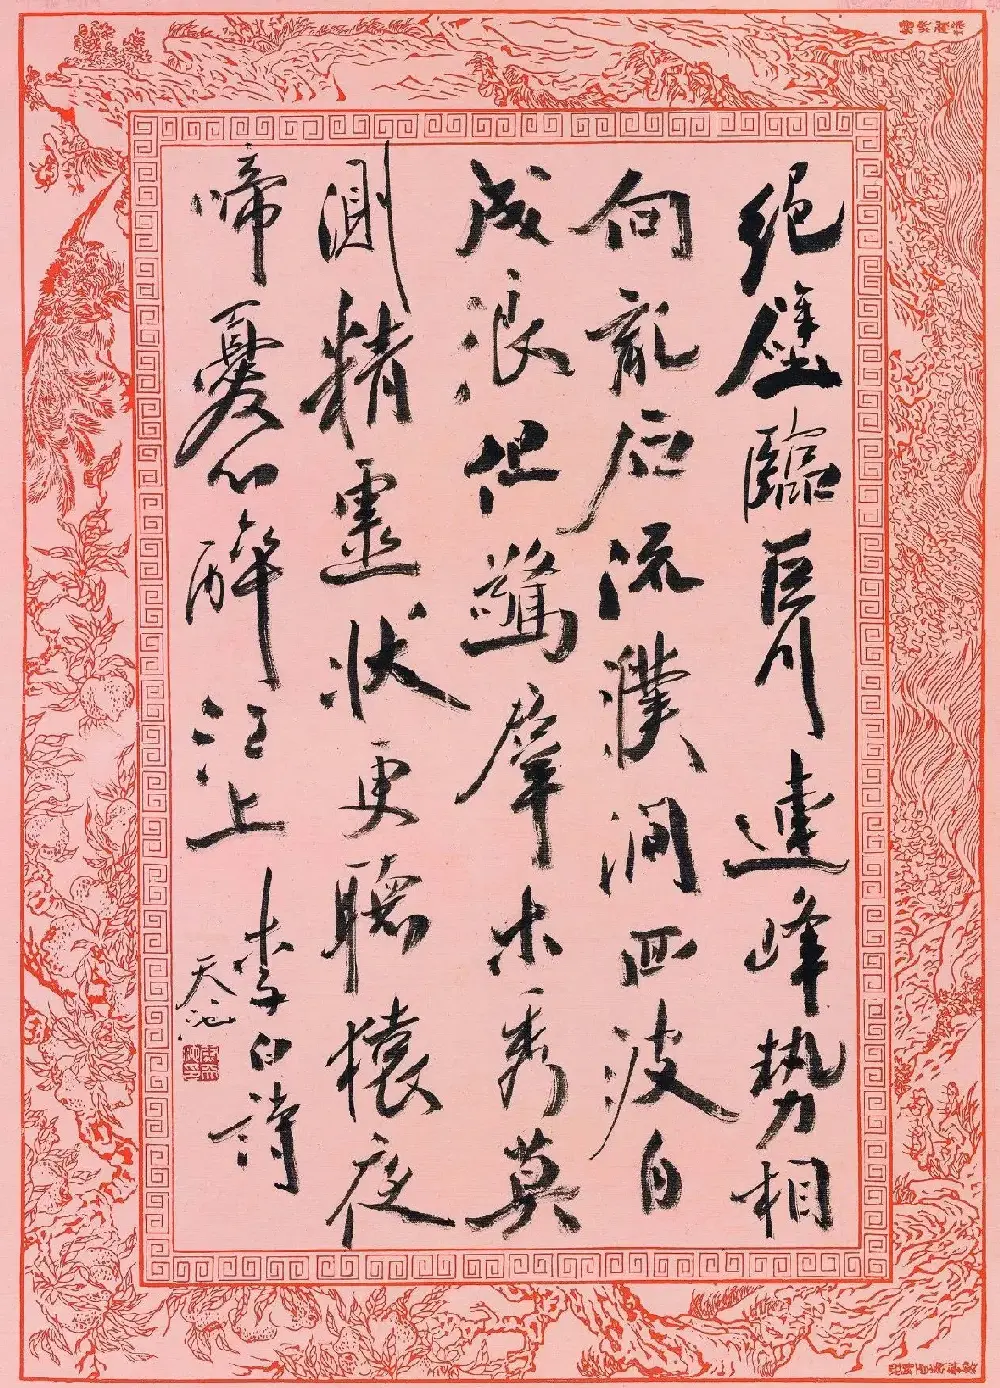 絕壁臨巨川連峰势相
向亂石流濮澗囬波自
成浪但驚羣木秀莫
測精靈狀更聽猿夜
啼憂心醉江上 李白詩
天池